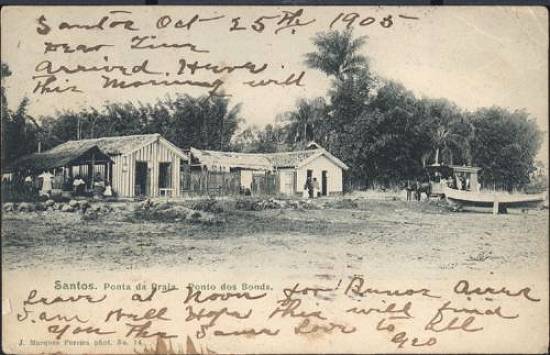 Santos Oct 25th 1905
Dear Time
Arrived Here
This Morning will
Santos. Ponta da Praia. Ponto dos Bonds.
Leave at Noon for Buenos Ayres
I am Well Hope this will find
you the same love to all
Geo
J. Marques Pereira phot. No. 14